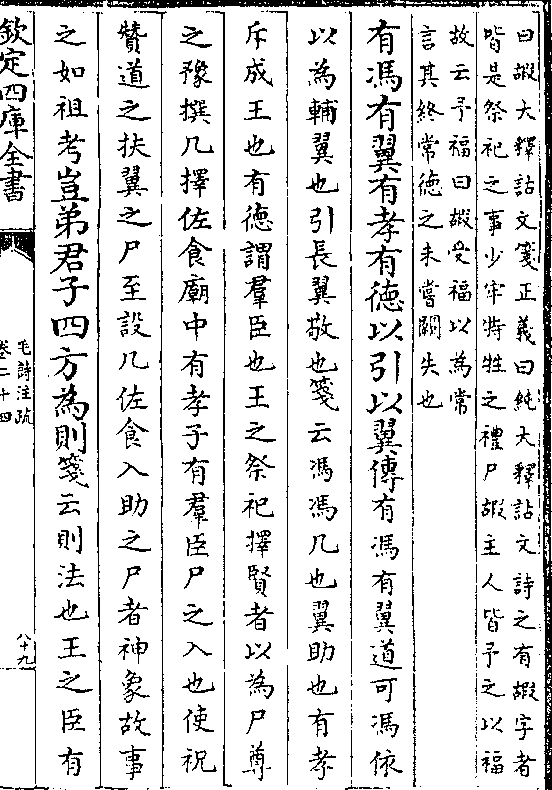 曰嘏大釋詁文箋正義曰純大釋詁文詩之有嘏字者
皆是祭祀之事少牢特牲之禮尸嘏主人皆予之以福
故云予福曰嘏受福以為常
言其終常德之未嘗闕失也
有馮有翼有孝有德以引以翼傳有馮有翼道可馮依
以為輔翼也引長翼敬也箋云馮馮几也翼助也有孝
斥成王也有德謂羣臣也王之祭祀擇賢者以為尸尊
之豫撰几擇佐食廟中有孝子有羣臣尸之入也使祝
贊道之扶翼之尸至設几佐食入助之尸者神象故事
之如祖考豈弟君子四方為則箋云則法也王之臣有
欽定四庫全書
毛詩注疏
卷二十四
八十九